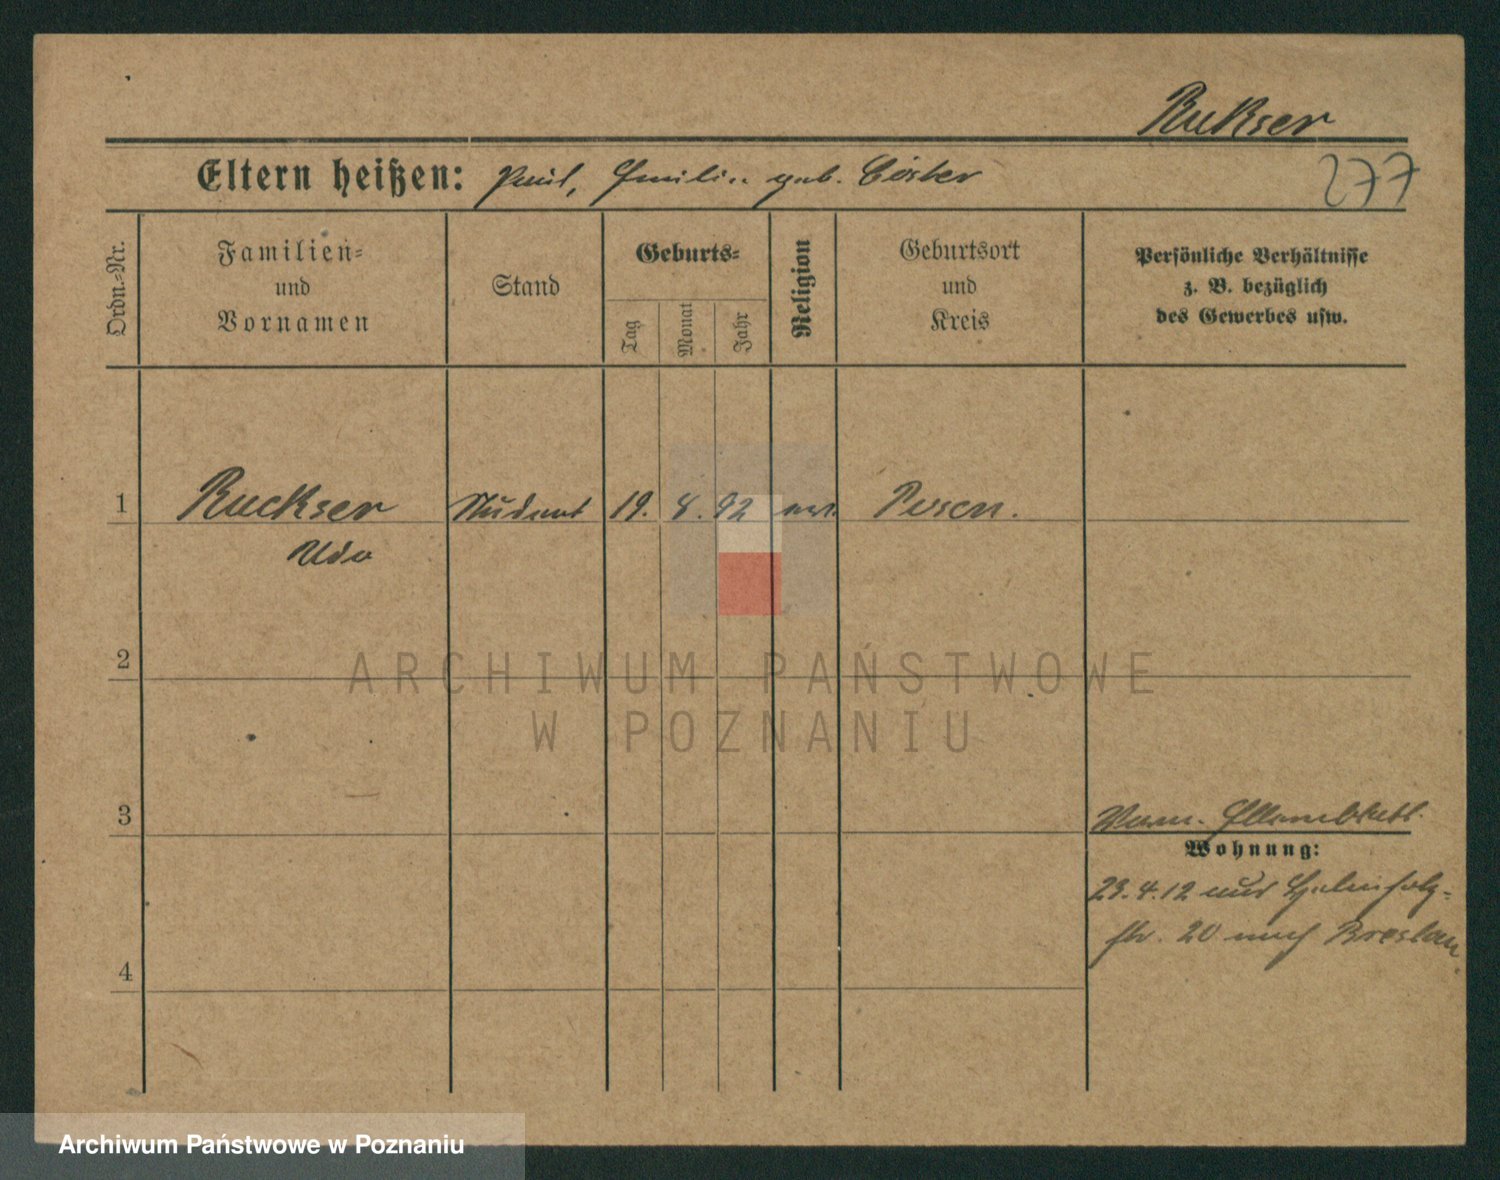 Rukser
Eltern heißen: Paul, Emilie geb. Cöster
277
Ordn.-Nr.
Familien-
und
Vornamen
Stand
Geburts-
Tag
Monat
Jahr
Religion
Geburtsort
und
Kreis
Persönliche Verhältnisse
z. B. bezüglich
des Gewerbes usw.
1 Ruckser Student 19. 8. 92 ev. Posen.
Udo
2
ARCHIWUM PAŃSTWOWE
W POZNANIU
3
Elternblatt.
Wohnung:
23.4.12 aus Helmholtz-
str. 20 nach Breslau.
4
Archiwum Państwowe w Poznaniu